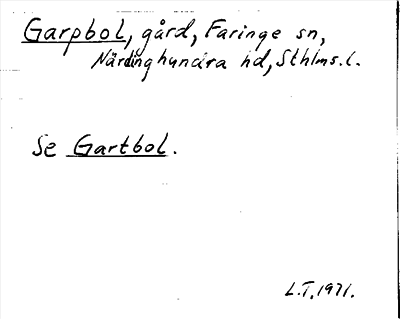 Garpbol, gård, Faringe sn,
Närdinghundra hd, Sthlms. l.
Se Gartbol.
L.T. 1971.